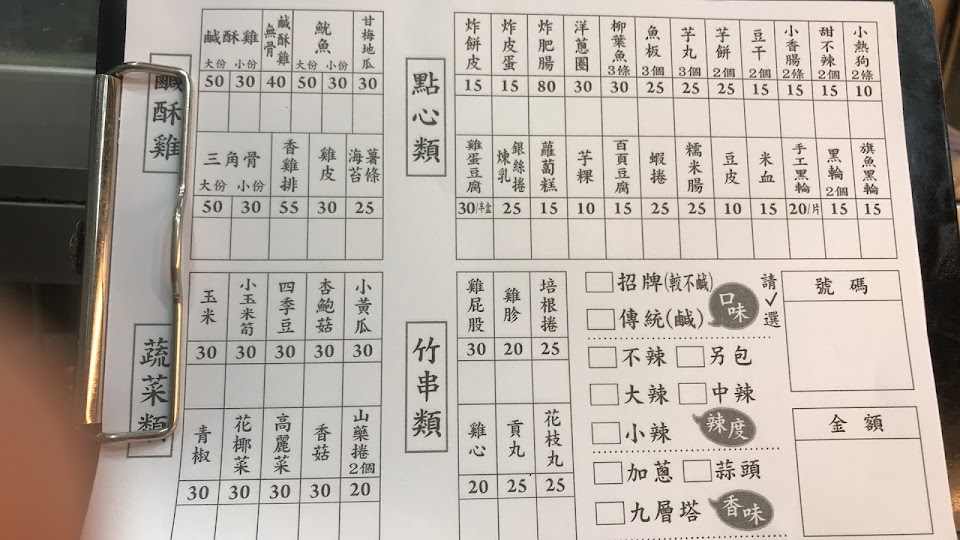 鹹酥雞
鹹酥雞 無骨鹹酥雞 魷魚 甘梅地瓜
大份 小份 大份 小份
50 30 40 50 30 30
三角骨 香雞排 雞皮 海苔薯條
大份 小份
50 30 55 30 25
點心類
炸餅皮 炸皮蛋 炸肥腸 洋蔥圈 柳葉魚3條 魚板3個 芋丸3個 芋餅2個 豆干2個 小香腸2條 甜不辣2個 小熱狗2條
15 15 80 30 30 25 25 25 15 15 15 10
雞蛋豆腐 銀絲捲煉乳 蘿蔔糕 芋粿 百頁豆腐 蝦捲 糯米腸 豆皮 米血 手工黑輪 黑輪2個 旗魚黑輪
30/半盒 25 15 10 15 25 25 10 15 20/片 15 15
蔬菜類
玉米 小玉米筍 四季豆 杏鮑菇 小黃瓜
30 30 30 30 30
青椒 花椰菜 高麗菜 香菇 山藥捲2個
30 30 30 30 20
竹串類
雞屁股 雞胗 培根捲
30 20 25
雞心 貢丸 花枝丸
20 25 25
請✓選
口味
招牌(較不鹹)
傳統(鹹)
不辣 另包
大辣 中辣
小辣 辣度
加蔥 蒜頭
九層塔 香味
號碼
金額